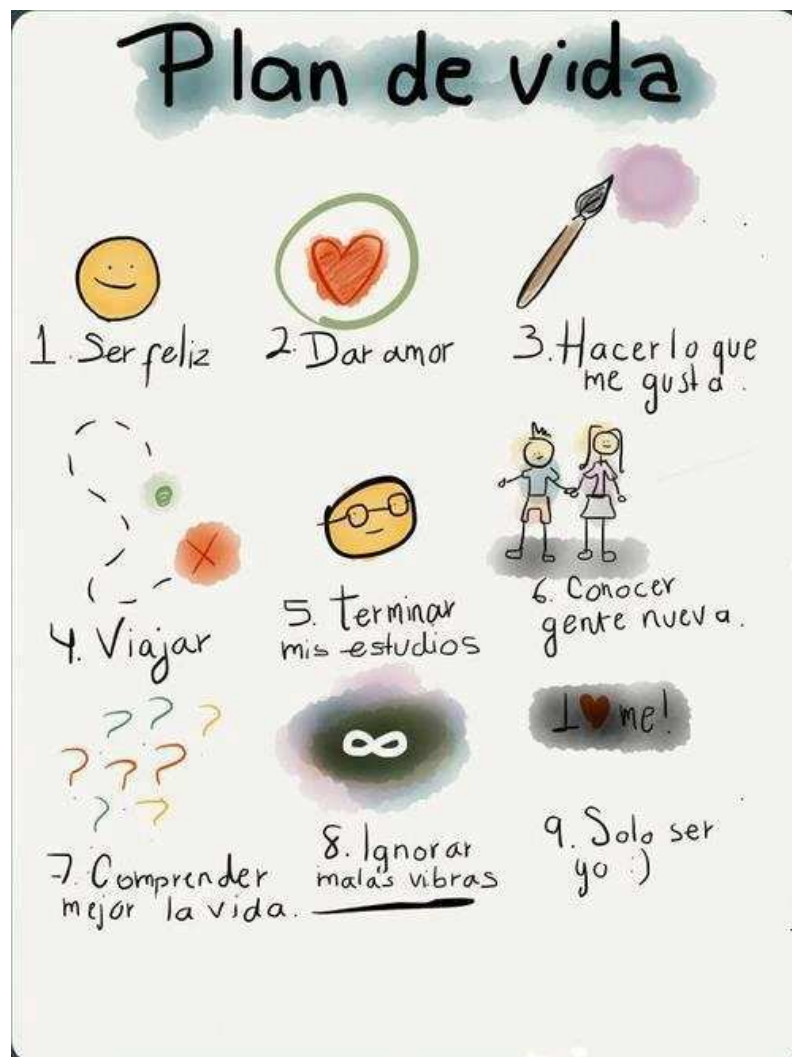 Plan de vida
1. Ser feliz
2. Dar amor
3. Hacer lo que
me gusta.
4. Viajar
5. terminar
mis estudios
6. Conocer
gente nueva.
I ❤ me!
7. Comprender
mejor la vida.
8. Ignorar
malas vibras
9. Solo ser
yo :)